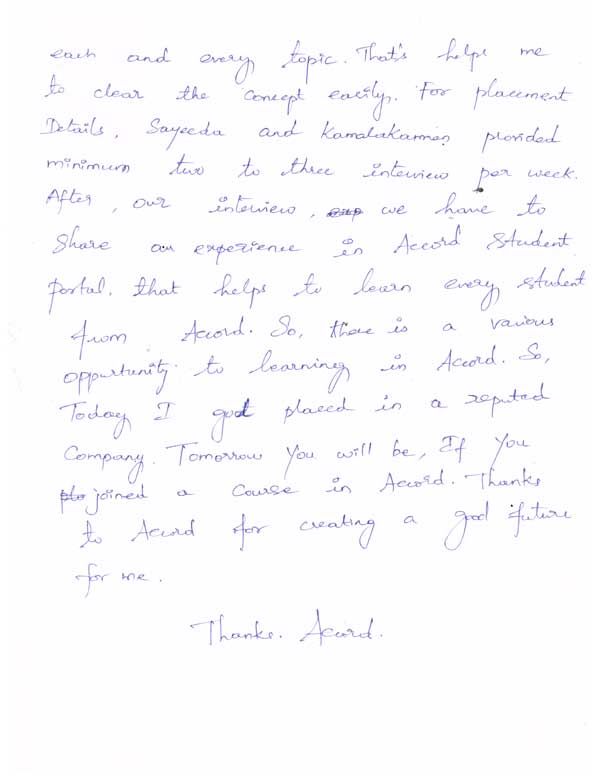 each and every topic. That's helps me
to clear the concept easily. For placement
Details, Sayeeda and Kamalakannan provided
minimum two to three interview per week.
After, our interview, we have to
Share our experience in Accord Student
portal. that helps to learn every student
from Accord. So, there is a various
oppurtunity to learning in Accord. So,
Today I got placed in a reputed
Company. Tomorrow You will be, If you
joined a course in Accord. Thanks
to Accord for creating a good future
for me.
Thanks. Accord.